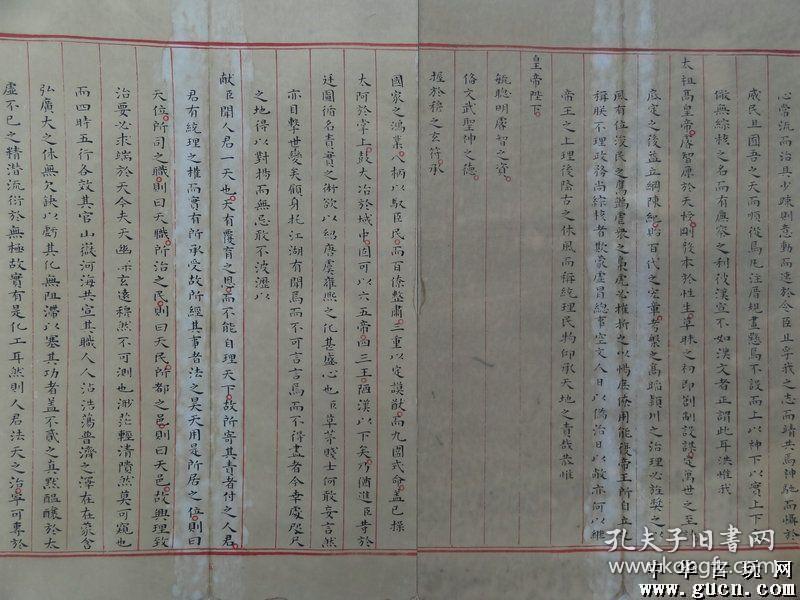 心常流而治具少疎則意動而速於令臣且孚我之志而靖共焉神馳而懾於
威民且囿吾之天而順從焉凡注厝規畫題焉不設而上以神下以實上下
儆無綜核之名而有廉察之利彼漢宣不如漢文者正謂此耳洪惟我
太祖高皇帝睿智原於天授剛發本於性生草昧之初即劄制設謨定萬世之至計
底定之後益立綱陳紀貽百代之宏章考槃之高蹈潁川之治理必旌獎之以
風有位浚民之鷹鸇虐衆之梟虎必摧折之以惕庶僚用能復帝王所自立
稱朕不理政務尚綜核者欺蒙虛冒總事空文人日以偽治日以敝亦何以繼
帝王之上理後隆古之休風而稱統理民物仰承天地之責哉恭惟
皇帝陛下
毓聰明睿智之資
備文武聖神之德
握於穆之玄符承
國家之鴻業八柄以馭臣民而百僚整肅三重以定謨猷而九圍式命蓋已操
太阿於掌上鼓大冶於域中固可以六五帝四三王陋漢以下矣乃猶進臣等於
廷圖循名責實之術欲以紹唐虞雍熙之化甚盛心也臣草茅賤士何敢妄言然
亦目擊世變矣顧身托江湖有聞焉而不可言言焉而不得盡者今幸處咫尺
之地得以對揚而無忌敢不披瀝以
獻臣聞人君一天也天有覆育之恩而不能自理天下故所寄其責者付之人君
君有統理之權而實有所承受故所經其事者法之昊天用是所居之位則曰
天位所司之職則曰天職所治之民則曰天民所都之邑則曰天邑故興理致
治要必求端於天今夫天幽玄遠穆然不可測也渺茫輕清隤然莫可窺也
而四時五行各效其官山嶽河海共宣其職人人沾浩蕩普濟之澤在在蒙含
弘廣大之休無欠缺以虧其化無阻滯以塞其功者蓋不貳之真默醞釀於太
虛不已之精潛流衍於無極故實有是化工耳然則人君法天之治寧可專於
孔夫子旧书网
www.kongfz.com
中华古玩网
www.gucn.com